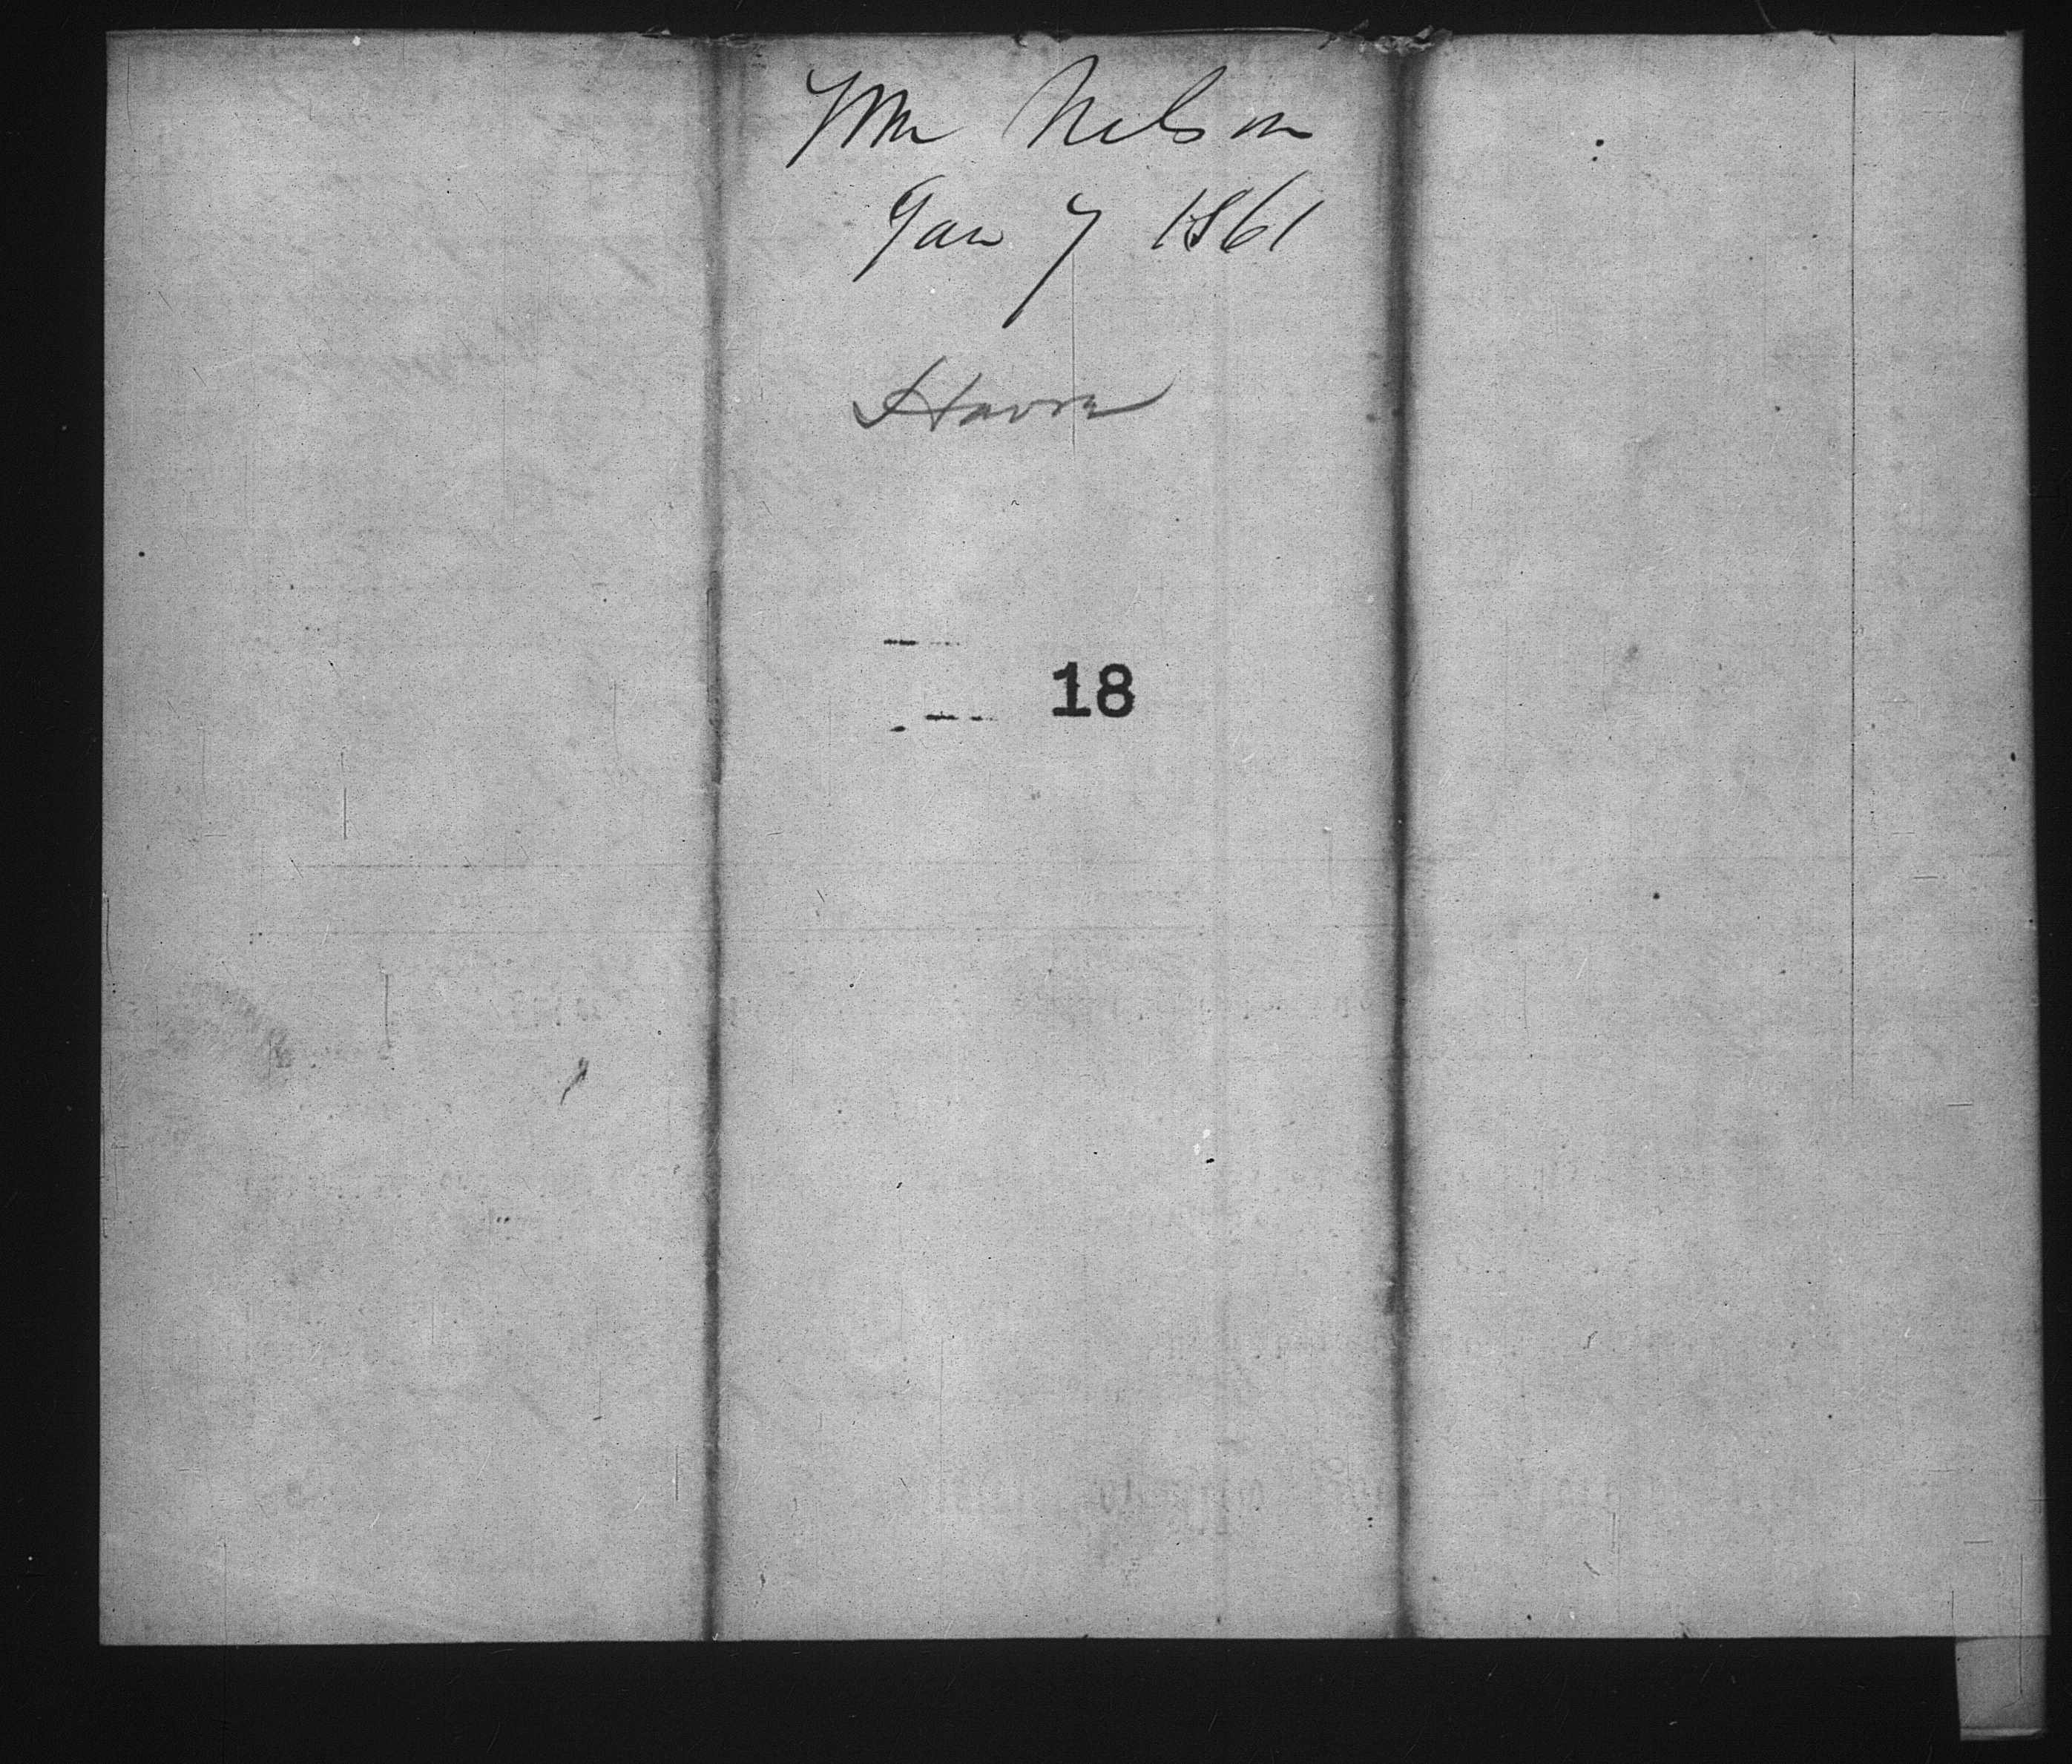 Wm Nelson
Jan 7 1861
Havre
18